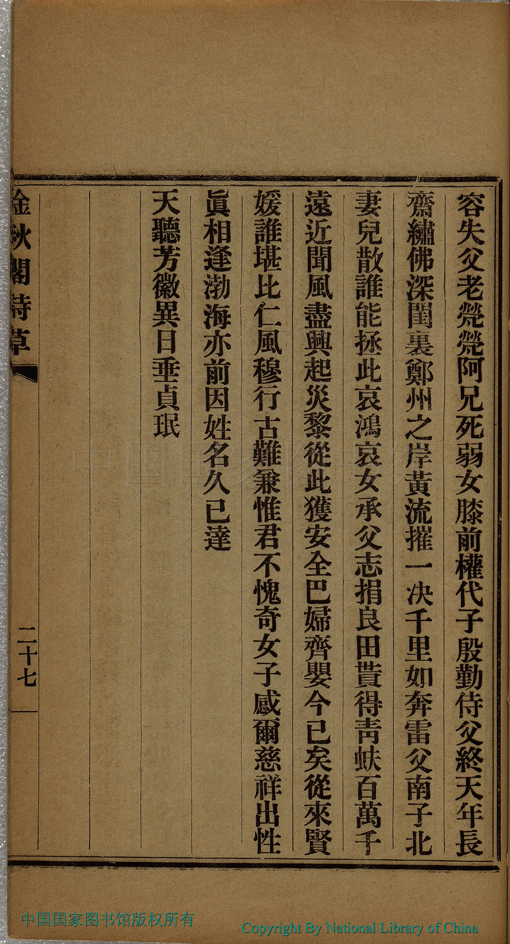 容失父老煢煢阿兄死弱女膝前權代子殷勤侍父終天年長
齋繡佛深閨裏鄭州之岸黃流摧一决千里如奔雷父南子北
妻兒散誰能拯此哀鴻哀女承父志捐良田貰得靑蚨百萬千
遠近聞風盡興起災黎從此獲安全巴婦齊嬰今已矣從來賢
媛誰堪比仁風穆行古難兼惟君不愧奇女子感爾慈祥出性
眞相逢渤海亦前因姓名久已達
天聽芳徽異日垂貞珉
金秋閣詩草
二十七
中国国家图书馆版权所有
Copyright By National Library of China